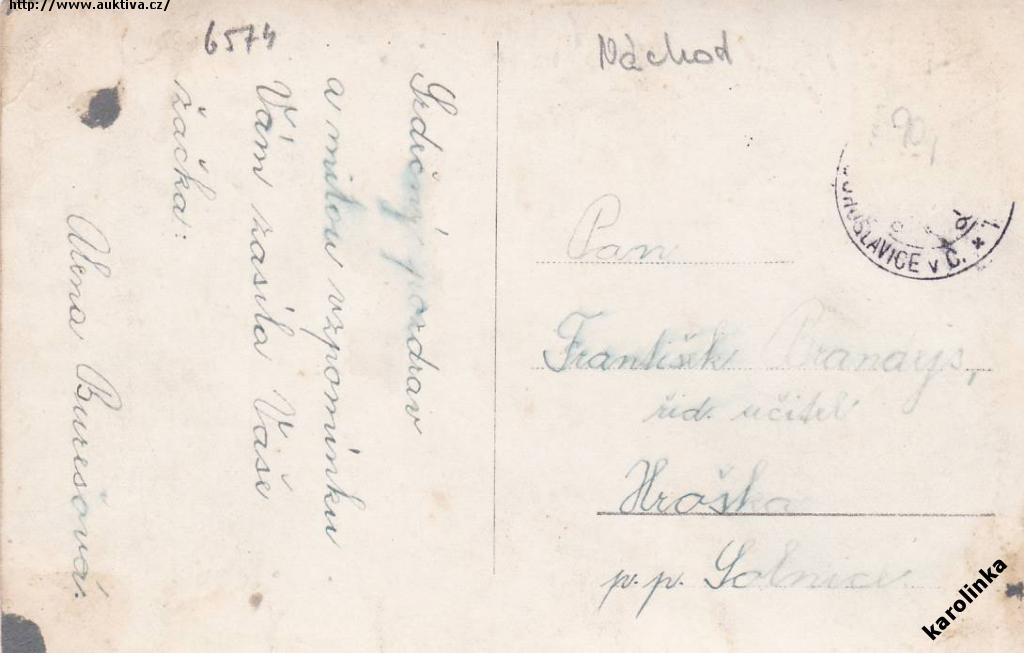 http://www.auktiva.cz/
6574
Náchod
Srdečný pozdrav
a milou vzpomínku
Vám zasílá Vaše
žačka:
Alena Burešová.
Pan
František Brandys,
říd. učitel
Hroška
p. p. Solnice
OHUSLAVICE v Č. * 1
karolinka